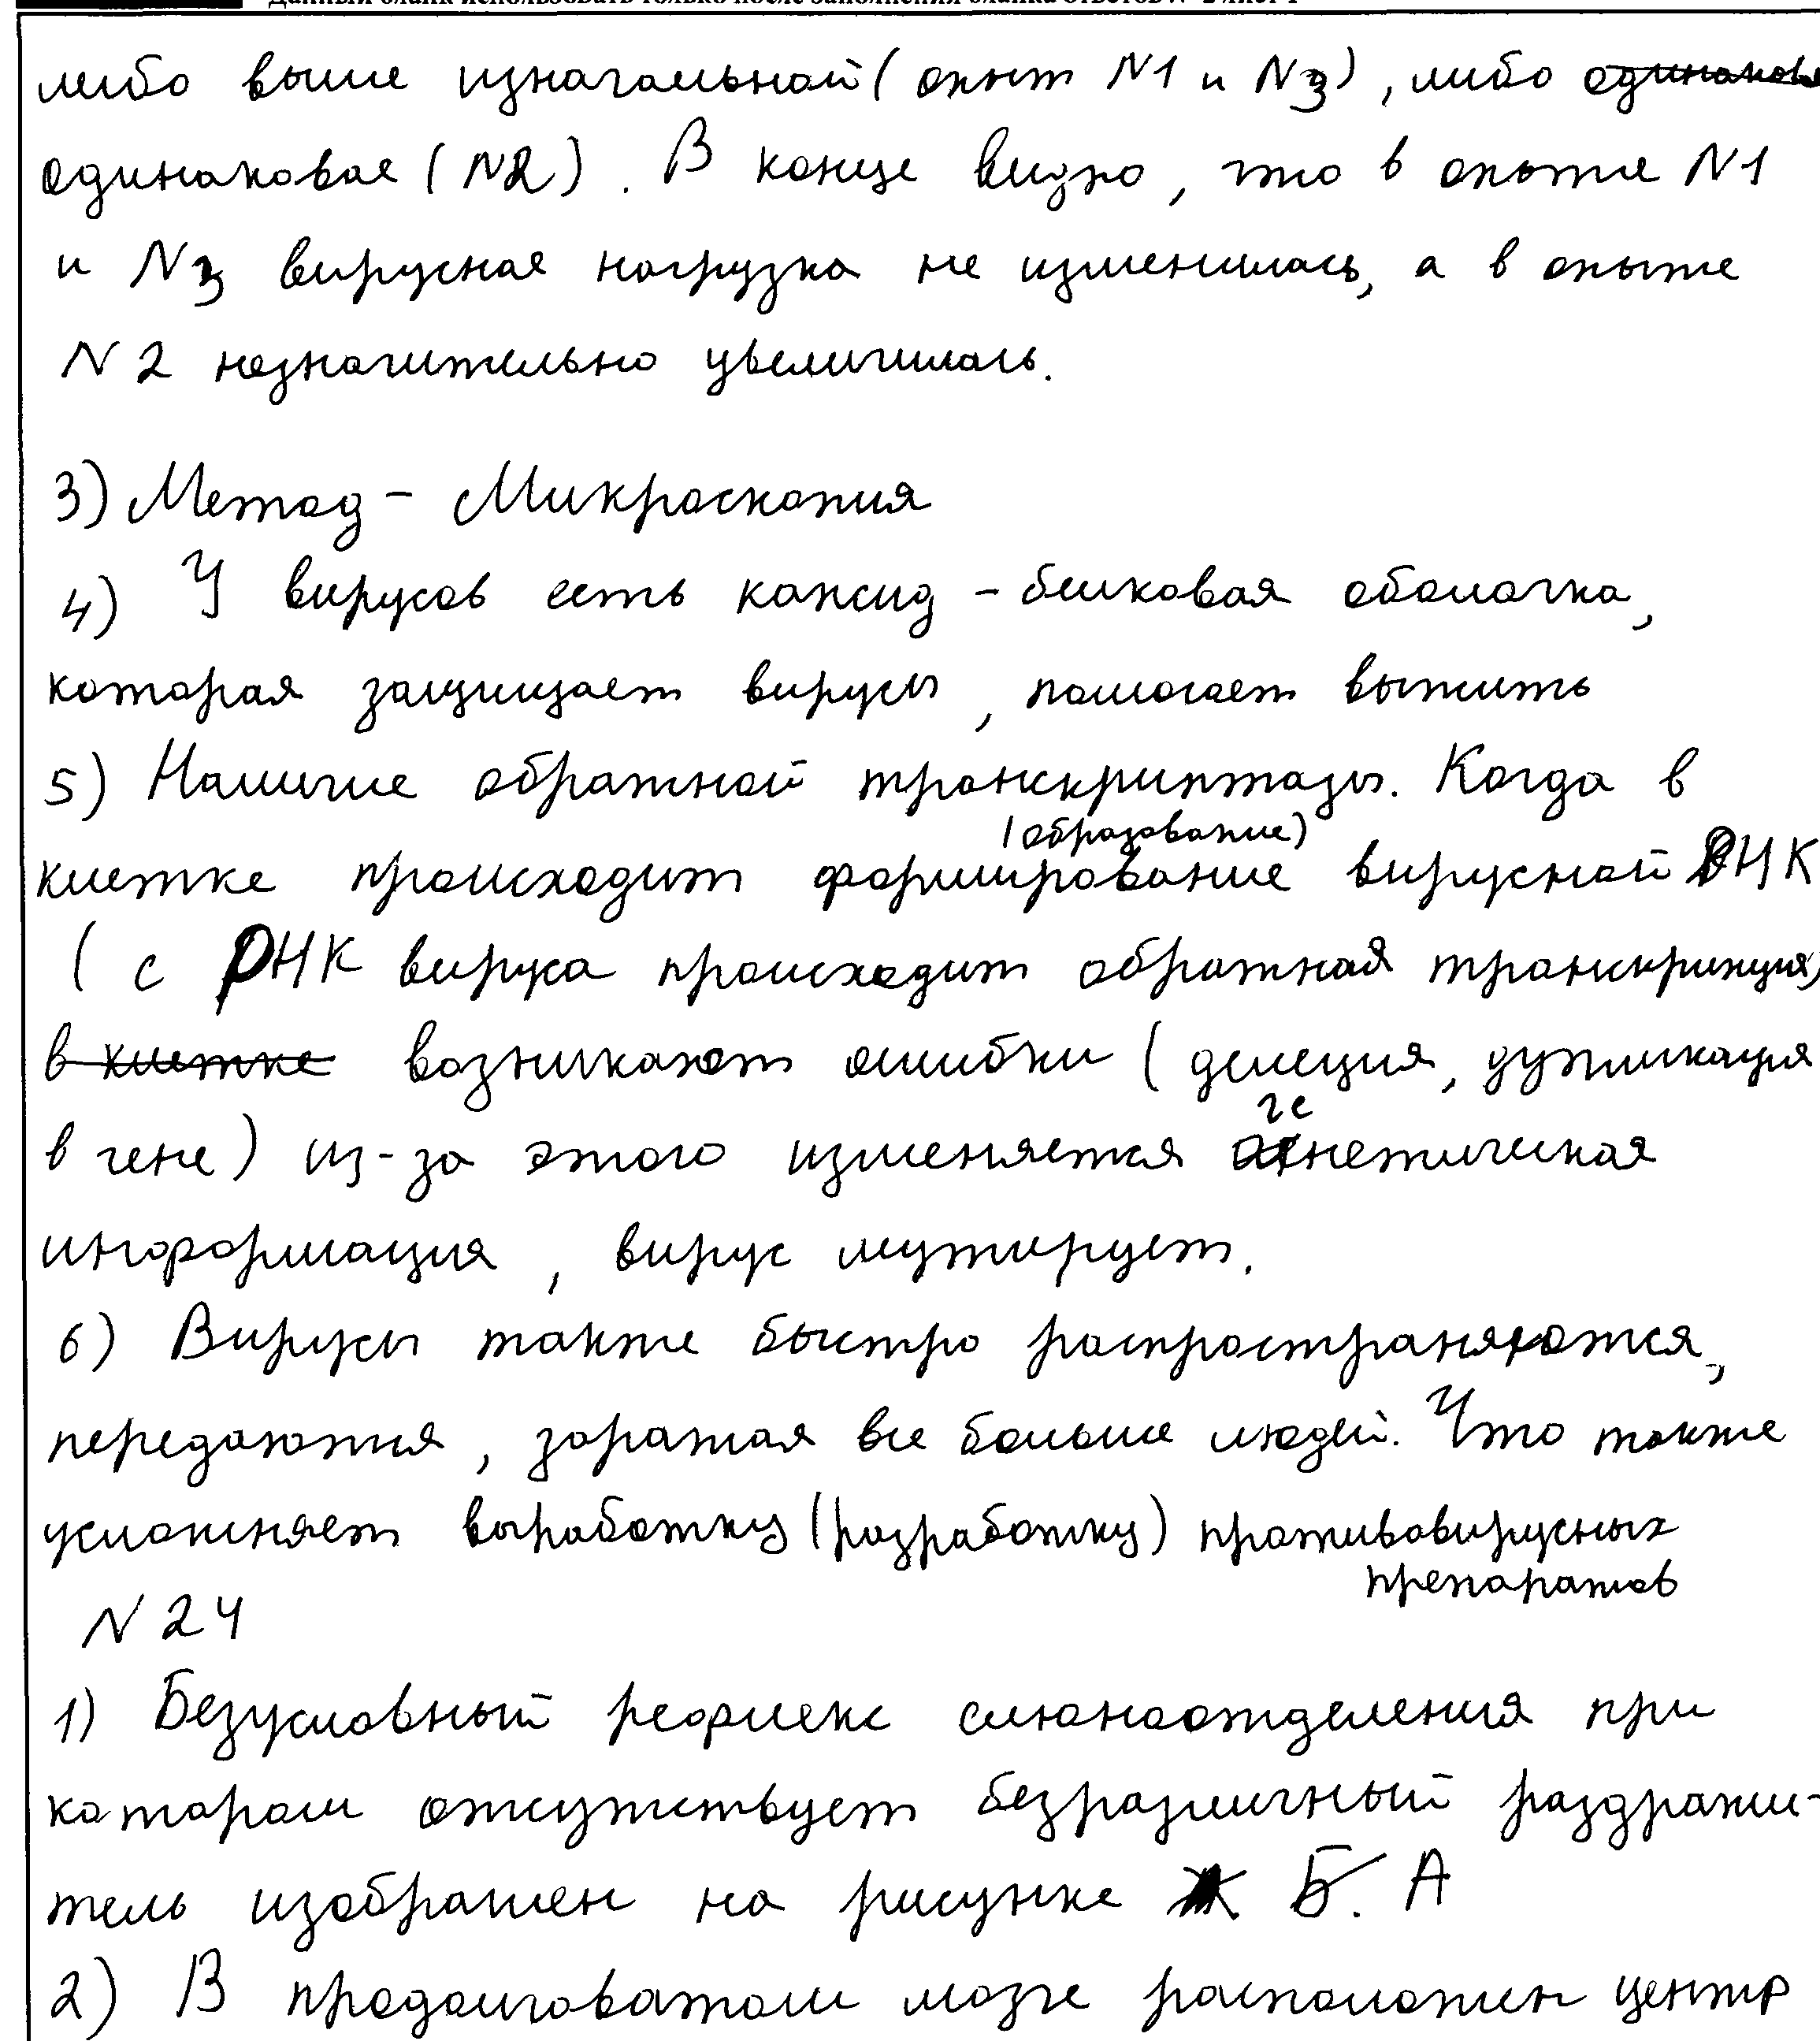 Данный бланк использовать только после заполнения бланка ответов № 2 лист 1
либо выше изначальной (опыт N1 и N3), либо одинаков
одинаковая (N2). В конце видно, что в опыте N1
и N3 вирусная нагрузка не изменилась, а в опыте
N2 незначительно увеличилась.
3) Метод - Микроскопия
4) У вирусов есть капсид - белковая оболочка,
которая защищает вирусы, помогает выжить
5) Наличие обратной транскриптазы. Когда в
(образование)
клетке происходит формирование вирусной РНК
( с РНК вируса происходит обратная транскрипция)
в клетке возникают ошибки (делеция, дупликация
в гене) из-за этого изменяется генетическая
информация, вирус мутирует.
6) Вирусы также быстро распространяются,
передаются, заражая все больше людей. Что также
усложняет выработку (разработку) противовирусных
препаратов
N 24
1) Безусловный рефлекс слюноотделения при
котором отсутствует безразличный раздражи-
тель изображен на рисунке Б. А
2) В продолговатом мозге расположен центр